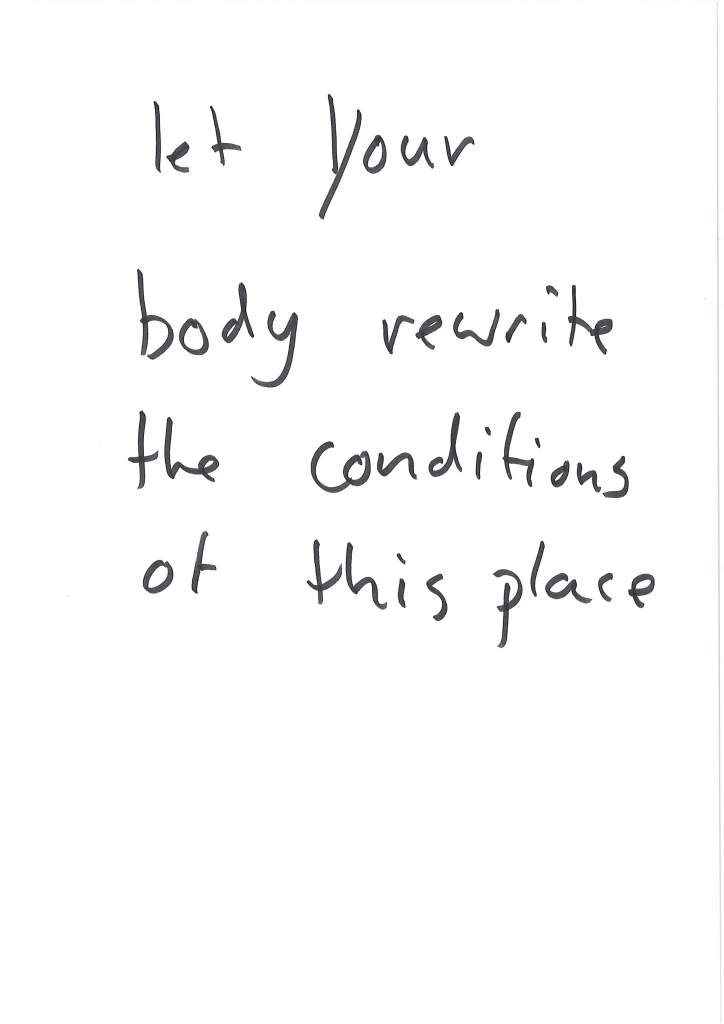 let your
body rewrite
the conditions
of this place